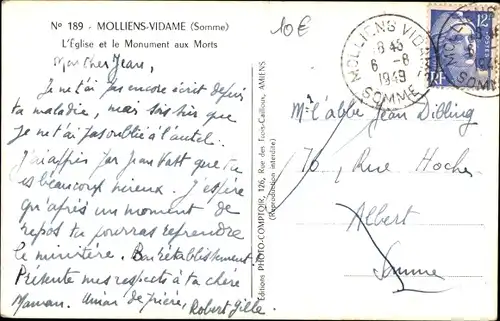 N° 189 - MOLLIENS-VIDAME (Somme)
L'Eglise et le Monument aux Morts
10€
Mon cher Jean,
Je ne t'ai pas encore écrit depuis
ta maladie, mais sois sûr que
je ne t'ai pas oublié à l'autel.
J'ai appris par Jean Patt que tu
es beaucoup mieux. J'espère
qu'après un moment de
repos tu pourras reprendre
le ministère. Bon rétablissement
Présente mes respects à ta chère
Maman. Union de prière, Robert Gille
Editions PHOTO-COMPTOIR, 126, Rue des Trois-Cailloux, AMIENS
(Reproduction interdite)
MOLLIENS VIDAME
8 45
6 -8
1949
SOMME
12F
RF
MOLLIENS
SOMME
M. l'abbé Jean Dibling
70, Rue Hoche
Albert
Somme